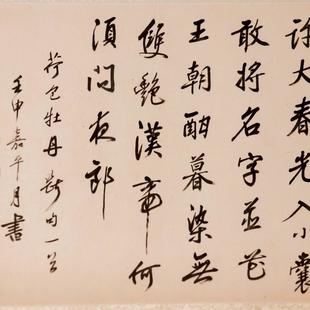 許大春光入小囊
敢將名字並花
王朝酣暮染無
雙艷漢帝何
須問夜郎
荷包牡丹斷句一首
壬申嘉平月書